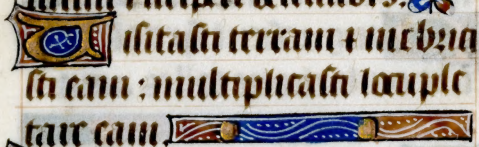 Uisitasti terram ⁊ inebria
sti eam : multiplicasti locuple
tare eam